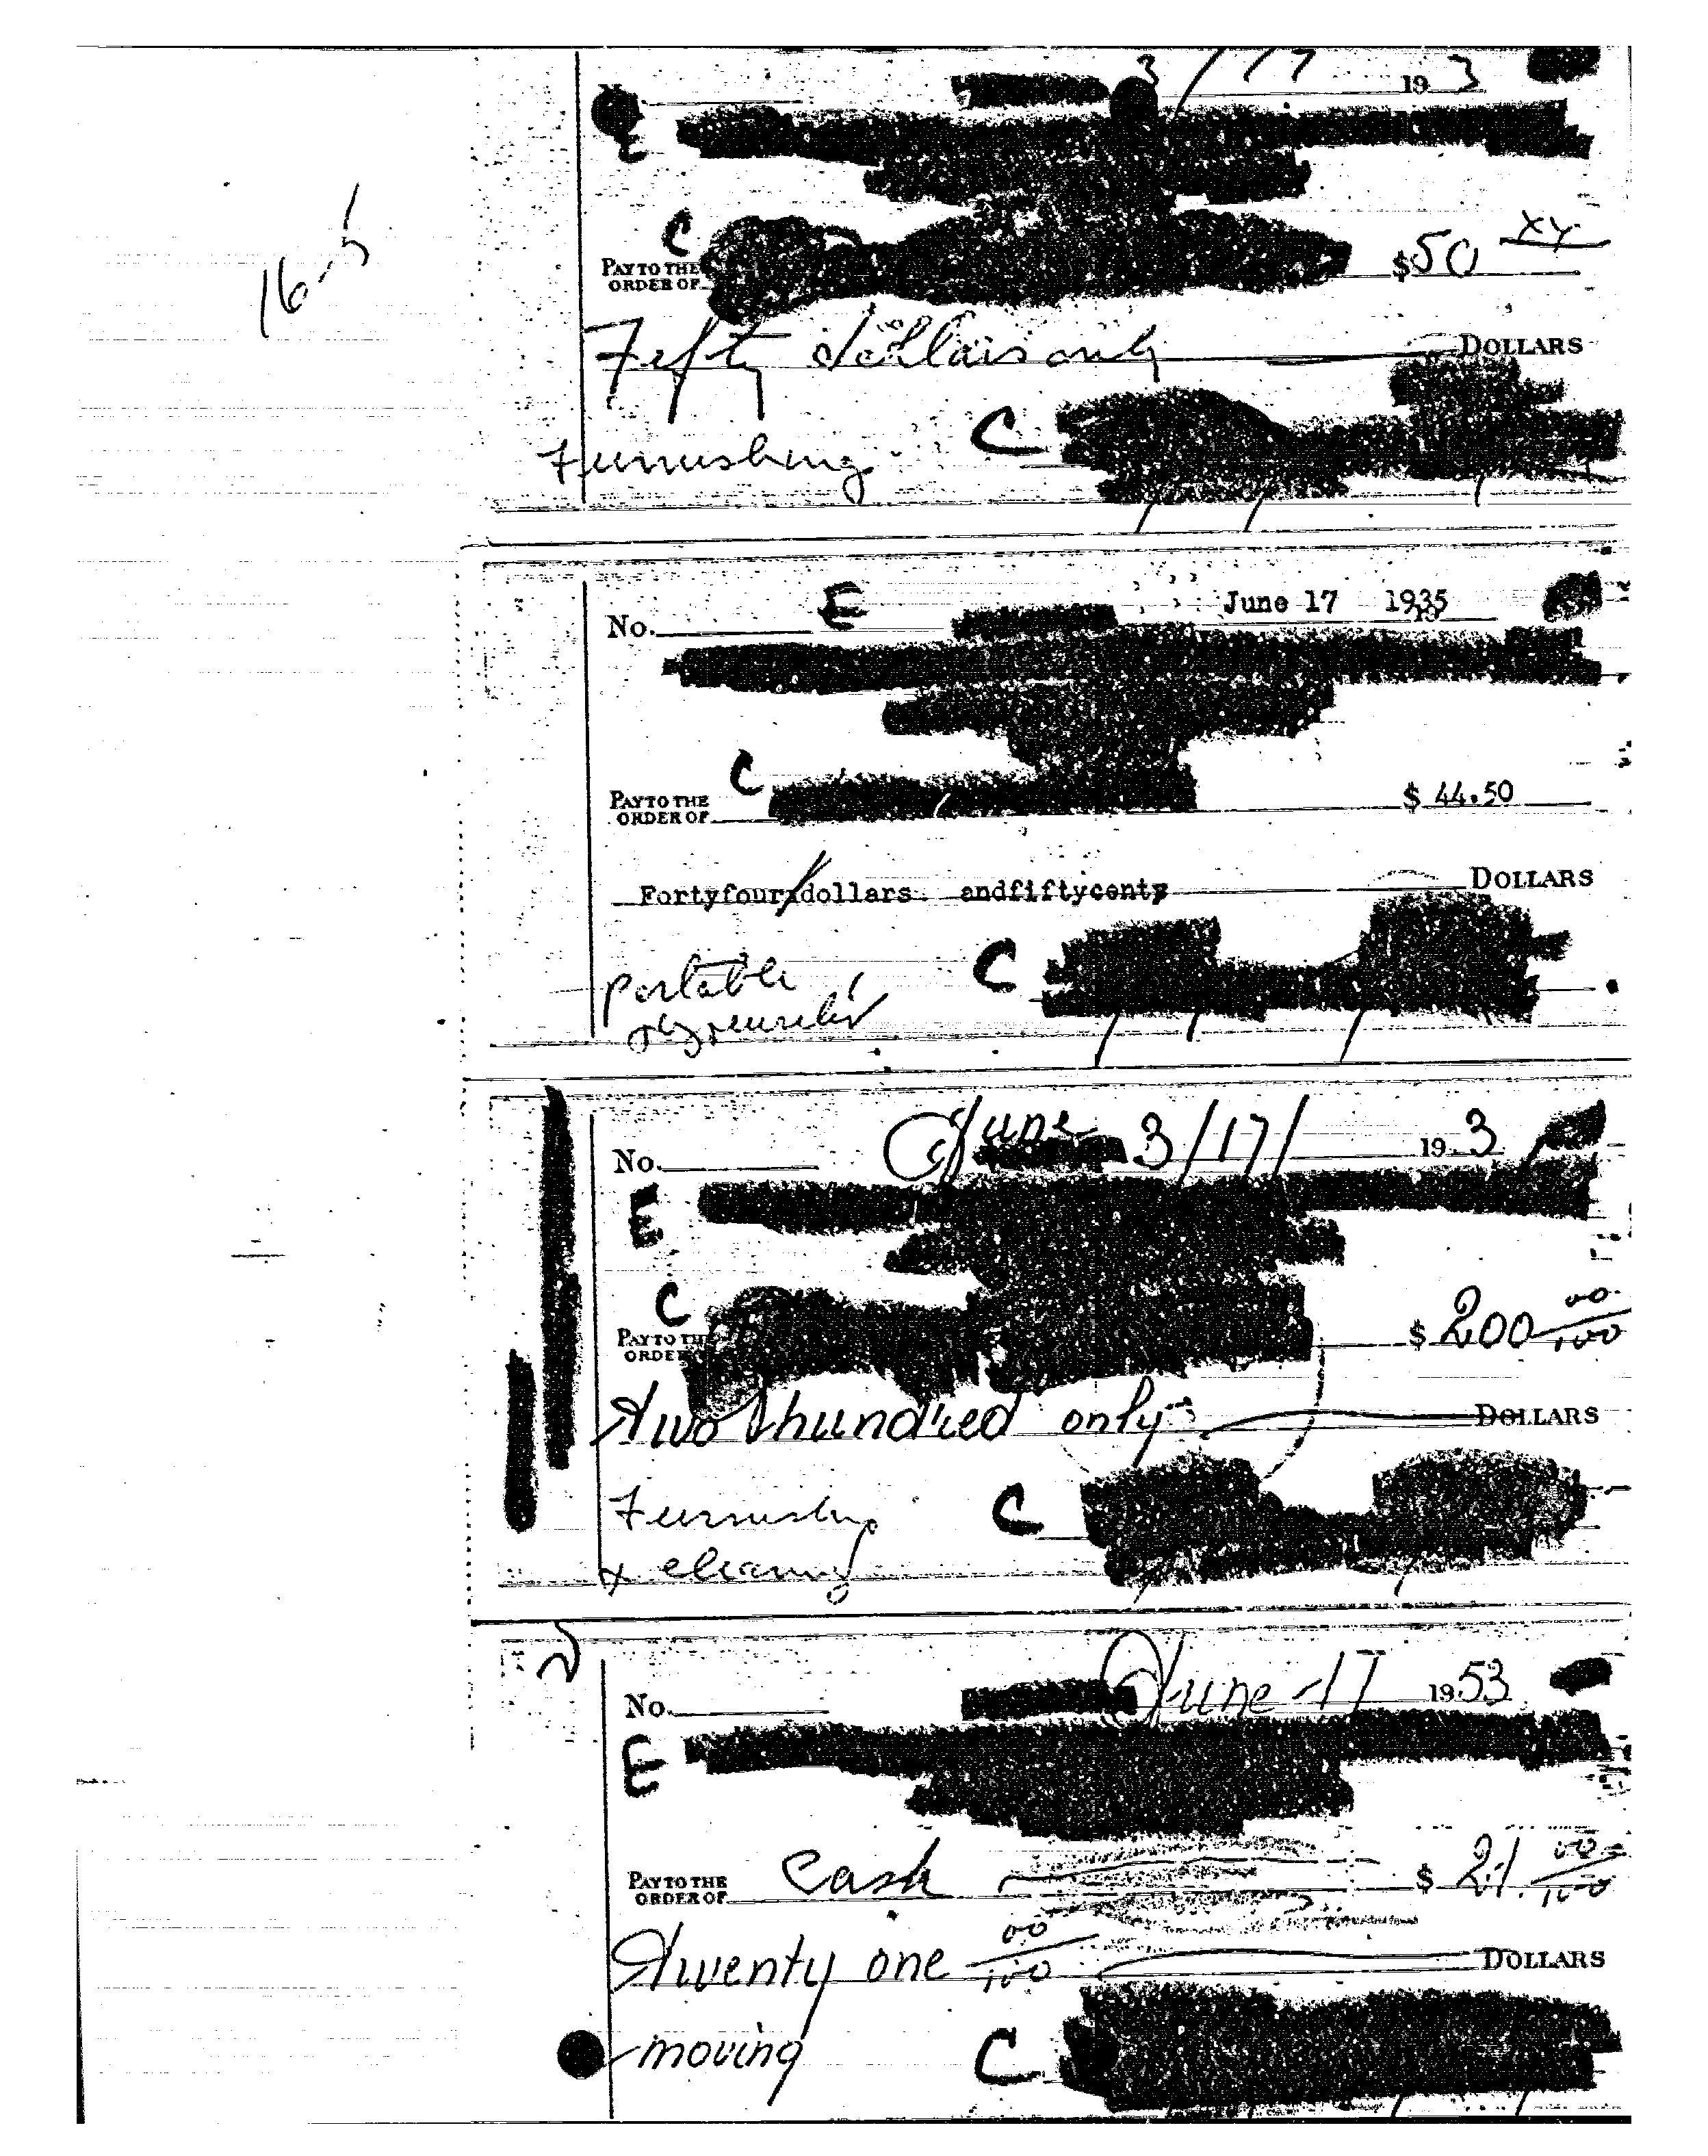 16-5
3/17 19 3
E
C
PAY TO THE
ORDER OF $50 xx
Fifty dollars only DOLLARS
C
Furnushing
No. E June 17 1935
19
C
PAY TO THE
ORDER OF $ 44.50
Fortyfour/dollars. andfiftycents DOLLARS
C
portable
No. June 3/17/ 19 3
E
C
PAY TO TH
ORDE $ 200 00/100
Two hundred only DOLLARS
Furnushing C
x cleaning
No. June-17 1953
E
PAY TO THE
ORDER OF Cash $ 21. 00/100
Twenty one 00/100 DOLLARS
moving C